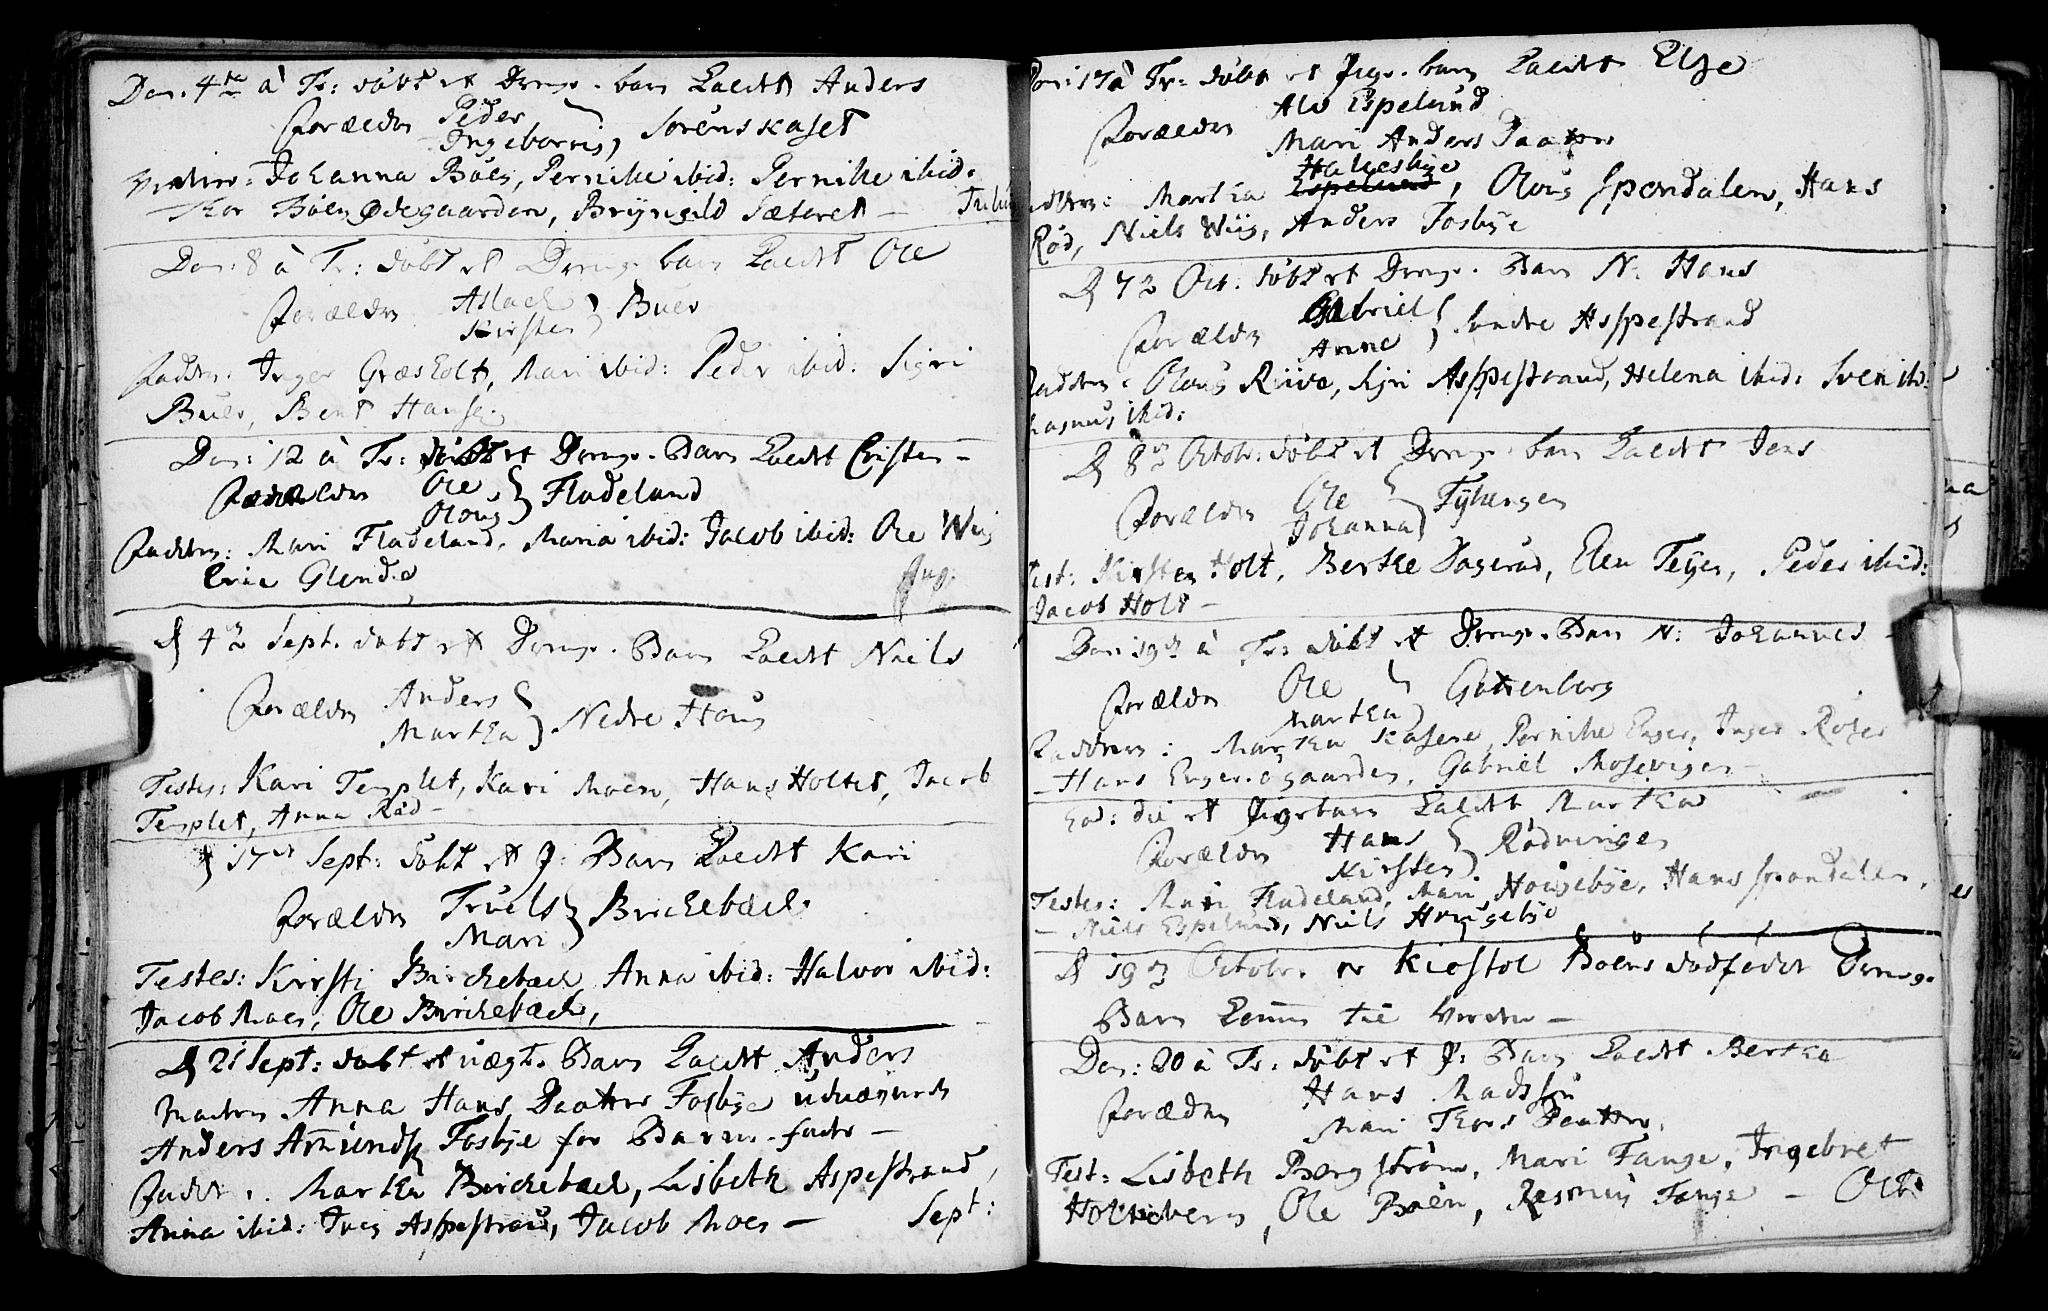 Dom: 4te à Tr: döbt et Drenge-barn kaldt Anders
Forældre Peder
Ingeborrig } Sörenskaset
Johanna Böen, Pernille ibid: Pernille ibid:
Böens Ødegaarden, Bryngild Sæteret —
Dom: 8 à Tr: döbt et Drenge barn kaldt Ole
Forældre Aslack
Kirsten } Buer
Faddere: Inger Græsholt, Mari ibid: Peder ibid: Sigri
Buer, Bent Hansen.
Dom: 12 à Tr: döbt et Drenge-Barn kaldt Christen —
Forældre Ole
Olous } Fladeland
Faddere: Mari Fladeland, Maria ibid: Jacob ibid: Ole Wiig
Eric Glende
Aug:
d 4de Sept. döbt et Drenge-Barn kaldt Niels
Forældre Anders
Martha } Nedre Houg
Testes: Kari Templet, Kari Moen, Hans Holtet, Jacob
Templet, Anna Röd —
d 17de Sept: döbt et P: Barn kaldt Kari
Forældre Truels
Mari } Birchebæck
Testes: Kirsti Birchebæck, Anna ibid: Halvor ibid:
Jacob Moen, Ole Birchebæck,
d 21 Sept: döbt et uægte Barn kaldt Anders
Moderen Anna Hans Daatter Fosbye udnævnede
Anders Amundss: Fosbye for Barne-fader —
Fadder: Martha Birchebæck, Lisbeth Aspestrand,
Anna ibid: Iver Aspestrand, Jacob Moen — Sept:
Dom: 17 à Tr: döbt et Pige-barn kaldt Elge
Forældre Alv Espelund
Mari Anders Daatter
Halvesbye
Martha Espelund, Olous Spondalen, Hans
Röd, Niels Wiig, Anders Fosbye
d 7de Oct: döbt et Drenge-Barn N: Hans
Forældre Gabriel
Anne } Söndre Aspestrand
Faddere: Olous Riive, Sigri Aspestrand, Helena ibid: Sven ibid:
Rasmus ibid:
d 8de Octob: döbt et Drenge-barn kaldt Jens
Forældre Ole
Johanna } Tyhengen
Test: Kirsten Holt, Berthe Dagerud, Elen Teyen, Peder ibid:
Jacob Holt —
Dom: 19de à Tr: döbt et Drenge-Barn N: Johannes
Forældre Ole
Martha } Guttenberg
Faddere: Martha Kasene, Pernille Enger, Inger
— Hans Enger-ögaarden, Gabriel Mosevigen —
Eod: die et Pigebarn kaldt Martha
Forældre Hans
Kirsten } Rödningen
Testes: Mari Fladeland, Mari Hougebye, Hans Spondalen,
— Niels Espelund, Niels Hougebye
d 19de Octobr. er Kiostol Böens dödfödet Drenge-
Barn kommen til Verden —
Dom: 20 à Tr: döbt et P: Barn kaldt Bertha
Forældre Hans Madssön
Mari Thors Daatter,
Test: Lisbeth Bergström, Mari Tange, Ingebret
Ole Böen, Rasmus Tange — Oct: